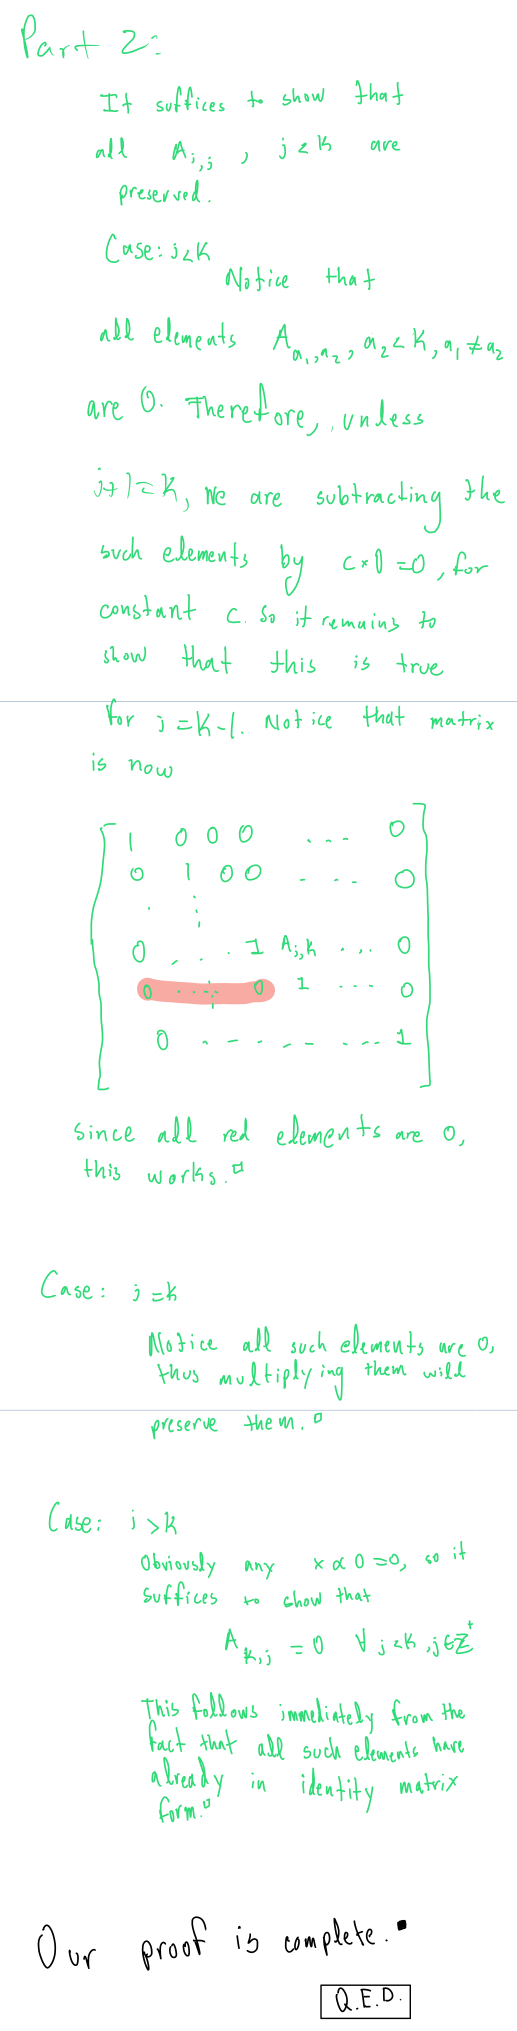 Part 2:
It suffices to show that
all A_{i,j}, j<k are
preserved.
Case: j<k
Notice that
all elements A_{a_1,a_2}, a_2<k, a_1≠a_2
are 0. Therefore, unless
j+1=k, we are subtracting the
such elements by c×0=0, for
constant c. So it remains to
show that this is true
for j=k-1. Notice that matrix
is now
1 0 0 0 ... 0
0 1 0 0 ... 0
. ⋮
0 ... 1 A_{j,k} ... 0
0 ... 0 1 ... 0
0 ... 1
since all red elements are 0,
this works.□
Case: j=k
Notice all such elements are 0,
thus multiplying them will
preserve them.□
Case: j>k
Obviously any x∝0=0, so it
suffices to show that
A_{k,j} = 0 ∀ j<k, j∈Z^+
This follows immediately from the
fact that all such elements have
already in identity matrix
form.□
Our proof is complete.■
Q.E.D.